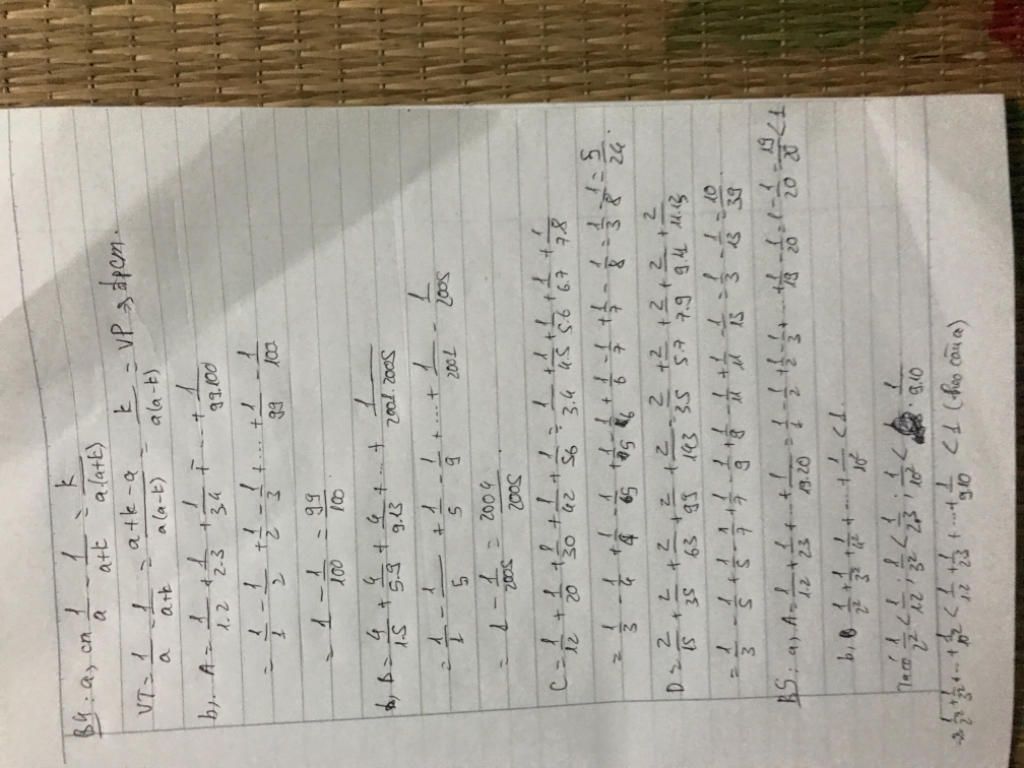 B4: a, cm 1/a - 1/(a+k) = k/(a(a+k))
VT = 1/a - 1/(a+k) = (a+k-a)/(a(a-k)) = k/(a(a-k)) = VP => đpcm.
b, A = 1/1.2 + 1/2.3 + 1/3.4 + ... + 1/99.100
= 1/1 - 1/2 + 1/2 - 1/3 + ... + 1/99 - 1/100
= 1 - 1/100 = 99/100
b, B = 4/1.5 + 4/5.9 + 4/9.13 + ... + 1/2001.2005
= 1/1 - 1/5 + 1/5 - 1/9 + ... + 1/2001 - 1/2005
= 1 - 1/2005 = 2004/2005
C = 1/12 + 1/20 + 1/30 + 1/42 + 1/56 = 1/3.4 + 1/4.5 + 1/5.6 + 1/6.7 + 1/7.8
= 1/3 - 1/4 + 1/4 - 1/5 + 1/5 - 1/6 + 1/6 - 1/7 + 1/7 - 1/8 = 1/3 - 1/8 = 5/24.
D = 2/15 + 2/35 + 2/63 + 2/99 + 2/143 = 2/3.5 + 2/5.7 + 2/7.9 + 2/9.11 + 2/11.13
= 1/3 - 1/5 + 1/5 - 1/7 + 1/7 - 1/9 + 1/9 - 1/11 + 1/11 - 1/13 = 1/3 - 1/13 = 10/39
B5: a, A = 1/1.2 + 1/2.3 + ... + 1/19.20 = 1/1 - 1/2 + 1/2 + 1/3 + ... + 1/19 - 1/20 = 1 - 1/20 = 19/20 < 1
b, B 1/2² + 1/3² + 1/4² + ... + 1/10² < 1.
Ta có 1/2² < 1/1.2; 1/3² < 1/2.3; 1/10² < 1/9.10
1/2² + 1/3² + ... + 1/10² < 1/1.2 + 1/2.3 + ... + 1/9.10 < 1 (theo câu a)